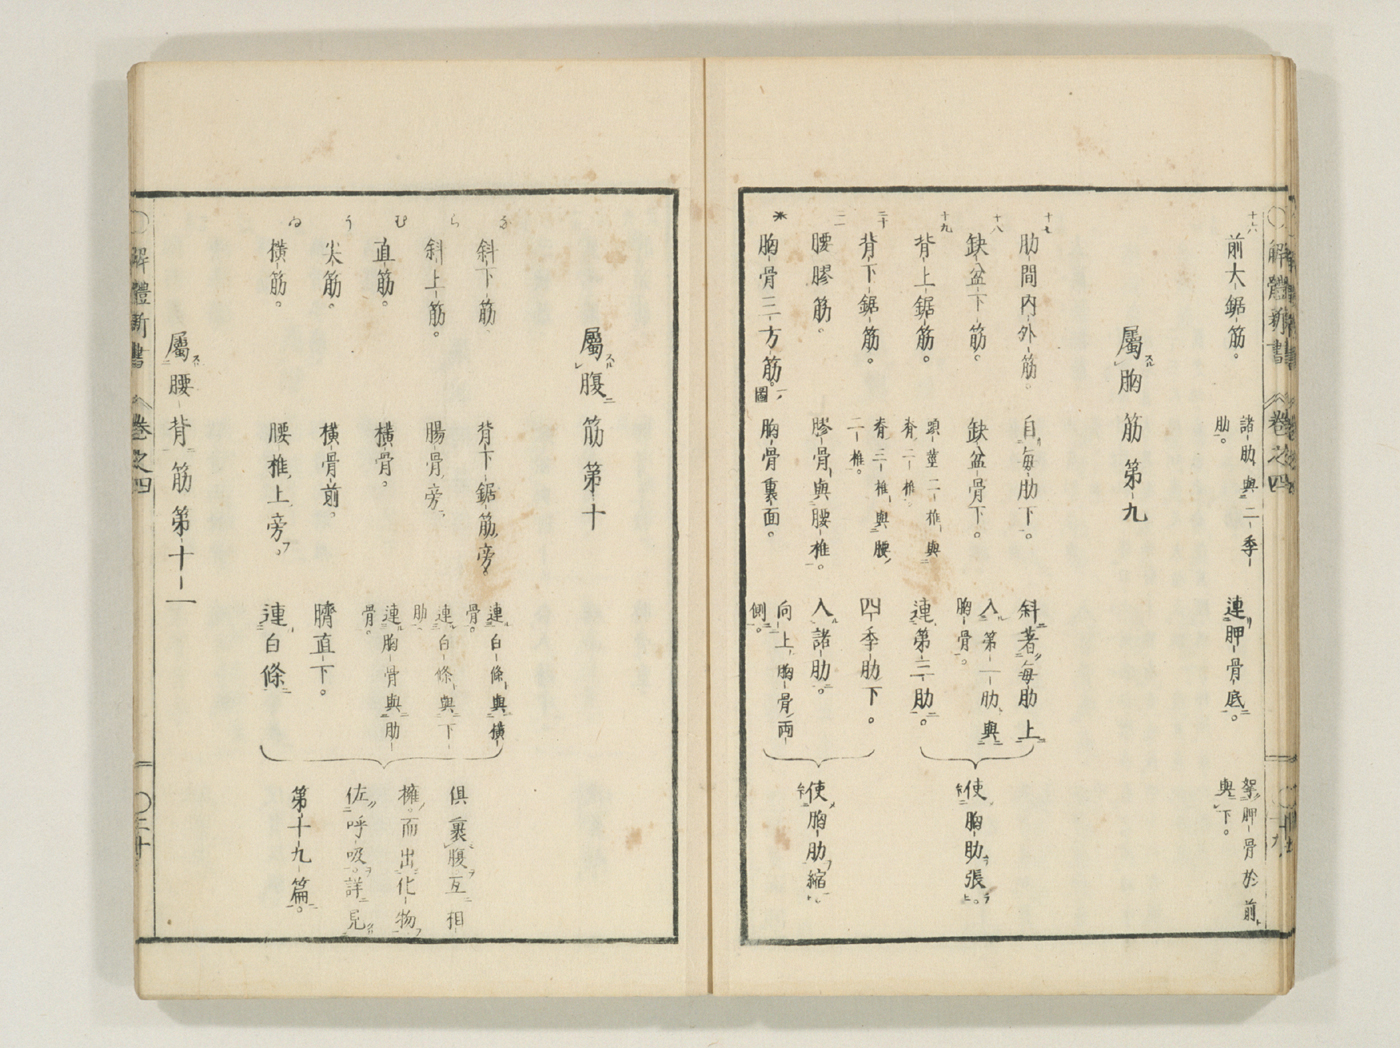 解體新書 卷之四
十六
前大鋸筋。
諸肋與二季
肋。
連胛骨底。
挈胛骨於前
與下。
屬胸筋第九
十七
肋間内外筋。
自每肋下。
斜著每肋上
十八
缺盆下筋。
缺盆骨下。
入第一肋與
胸骨。
十九
背上鋸筋。
頸莖二椎與
脊二椎
連第三肋。
使胸肋張
二十
背下鋸筋。
脊三椎與腰
二椎
四季肋下。
二
腰膠筋。
膠骨與腰椎。
入諸肋。
胸骨三方筋。圖
胸骨裏面。
向上胸骨兩
側。
使胸肋縮
屬腹筋第十
な
斜下筋
背下鋸筋旁
連白條與橫
骨。
ら
斜上筋。
腸骨旁
連白條與下
肋
む
直筋。
橫骨。
連胸骨與肋
骨。
う
尖筋。
橫骨前。
臍直下。
ゐ
橫筋。
腰椎上旁。
連白條
俱裹腹互相
擁而出化物
佐呼吸詳見
第十九篇。
屬腰背筋第十一
解體新書 卷之四
二十